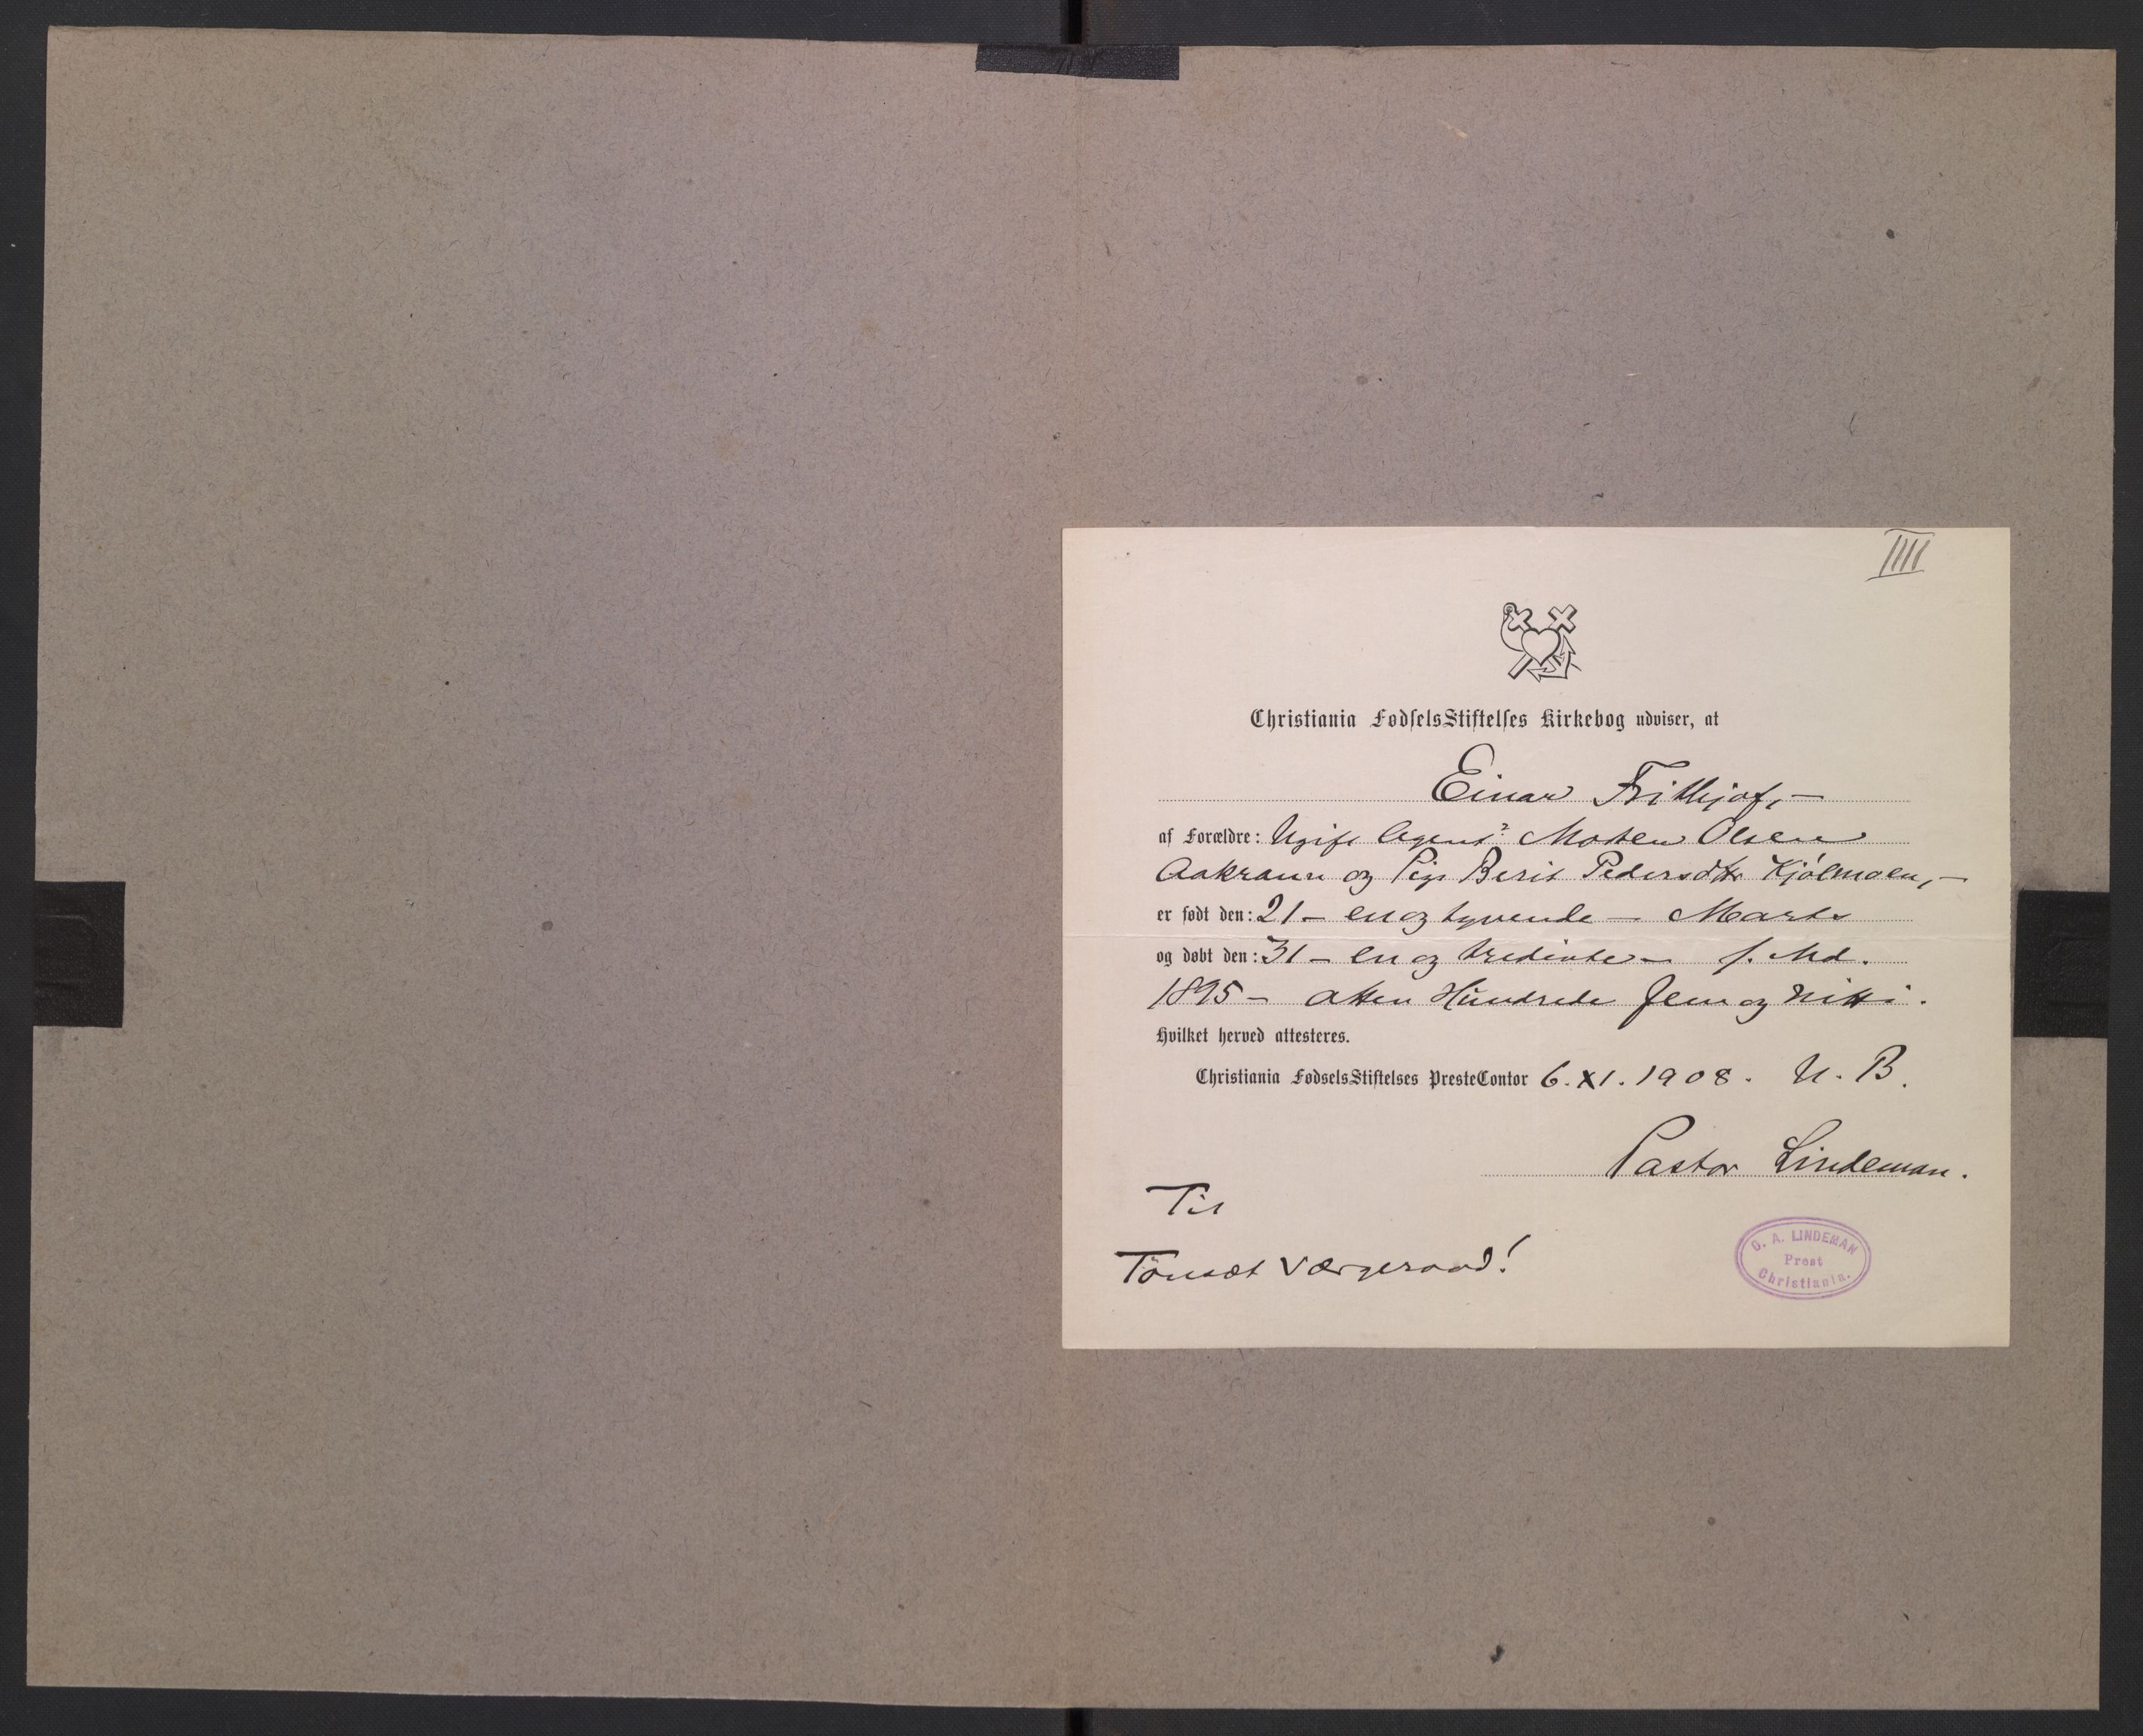 IIII
Christiania FødselsStiftelses Kirkebog udviser, at
Einar Frithjof,—
af Forældre: Ugift Agent? Morten Olsen
Aakrann og Pige Berit Pedersdttr Kjölmoen,—
er født den: 21 — en og tyvende — Marts
og døbt den: 31 — en og tredivte — s. Md.
1895 — atten Hundrede fem og nitti.
Hvilket herved attesteres.
Christiania FødselsStiftelses PresteContor 6. XI. 1908. U. B.
Pastor Lindeman.
Til
Tönset Værgeraad!
O. A. LINDEMAN
Prest
Christiania.